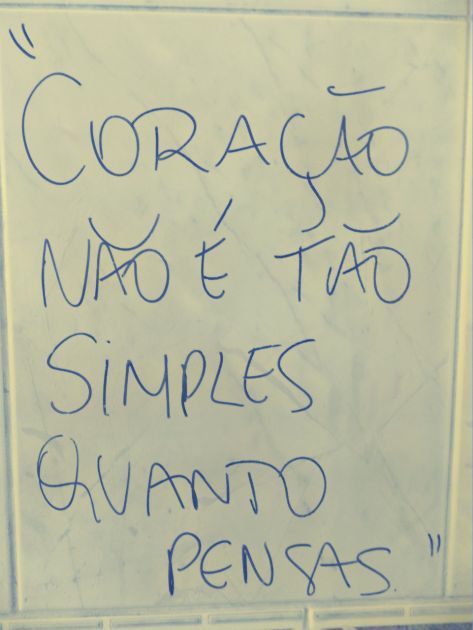 "CORAÇÃO
NÃO É TÃO
SIMPLES
QUANTO
PENSAS."